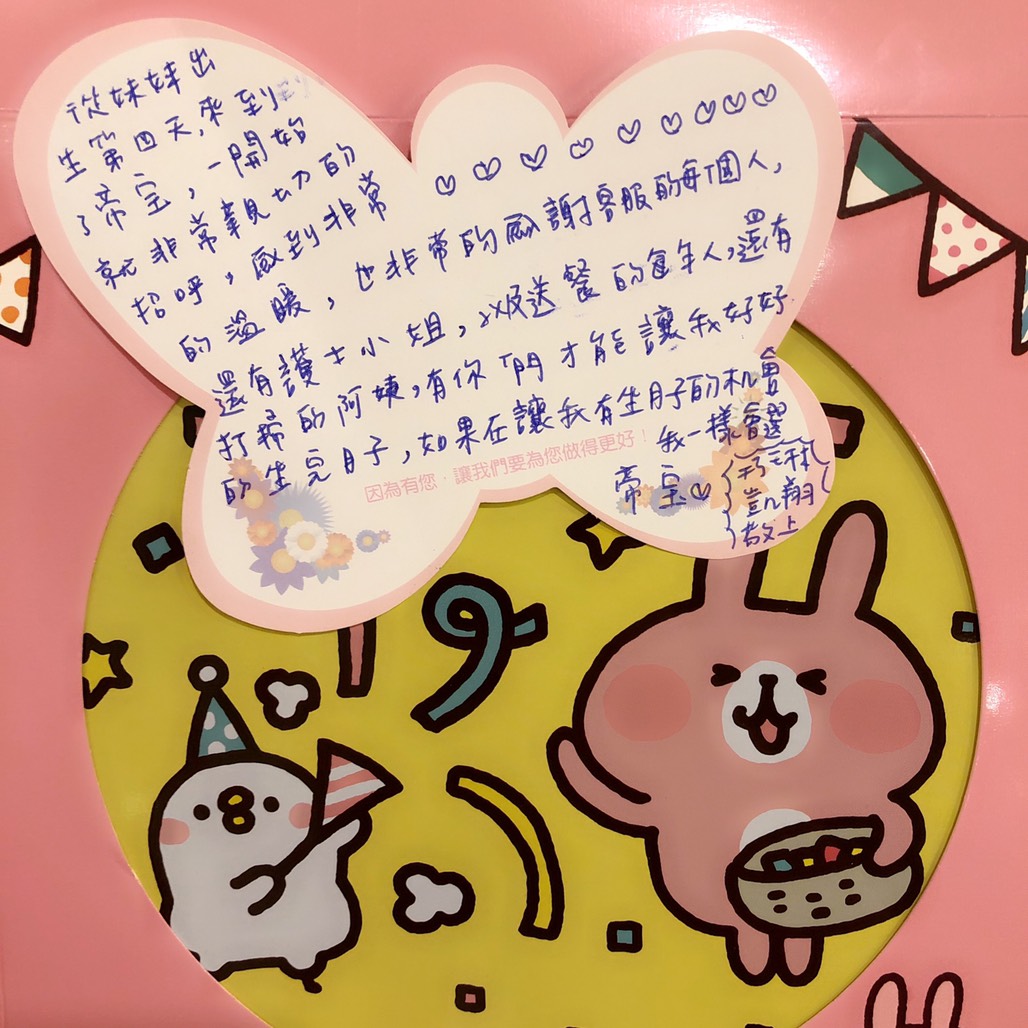 從妹妹出
生第四天,來到
了帝宝,一開始
就非常親切的
招呼,感到非常
的溫暖,也非常的感謝客服的每個人,
還有護士小姐,送餐的每個人,還有
打掃的阿姨,有你們才能讓我好好
的坐完月子,如果在讓我有坐月子的机會
我一樣會選
帝宝♡
因為有您,讓我們要為您做得更好!
凱翔
敬上